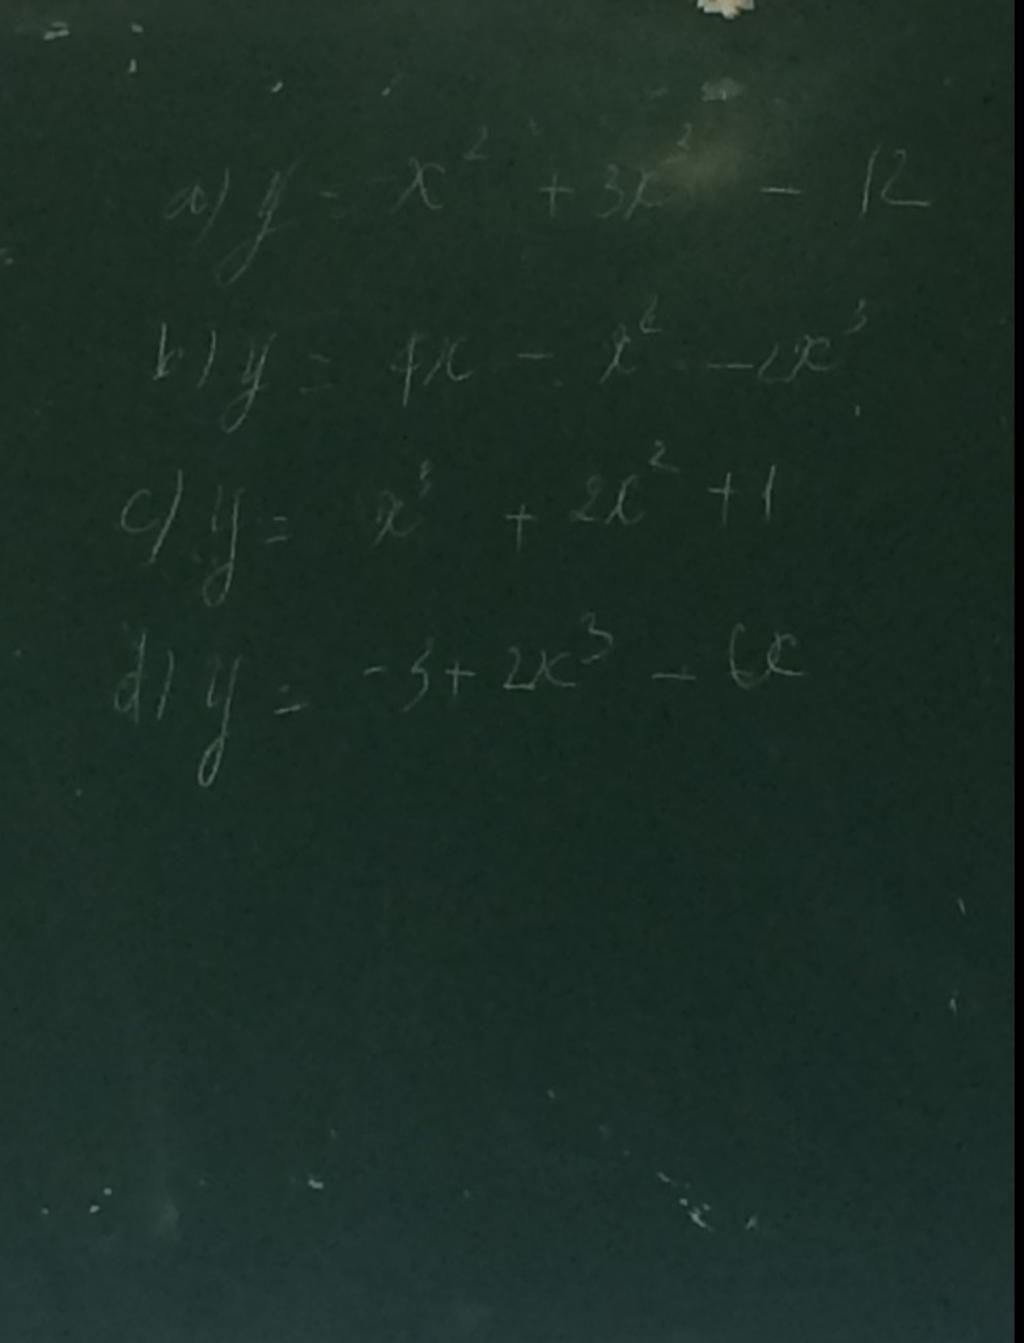 a) y = x² + 3x² - 12
b) y = 4x - x² - 2x³
c) y = x³ + 2x² + 1
d) y = -3 + 2x³ - 6x